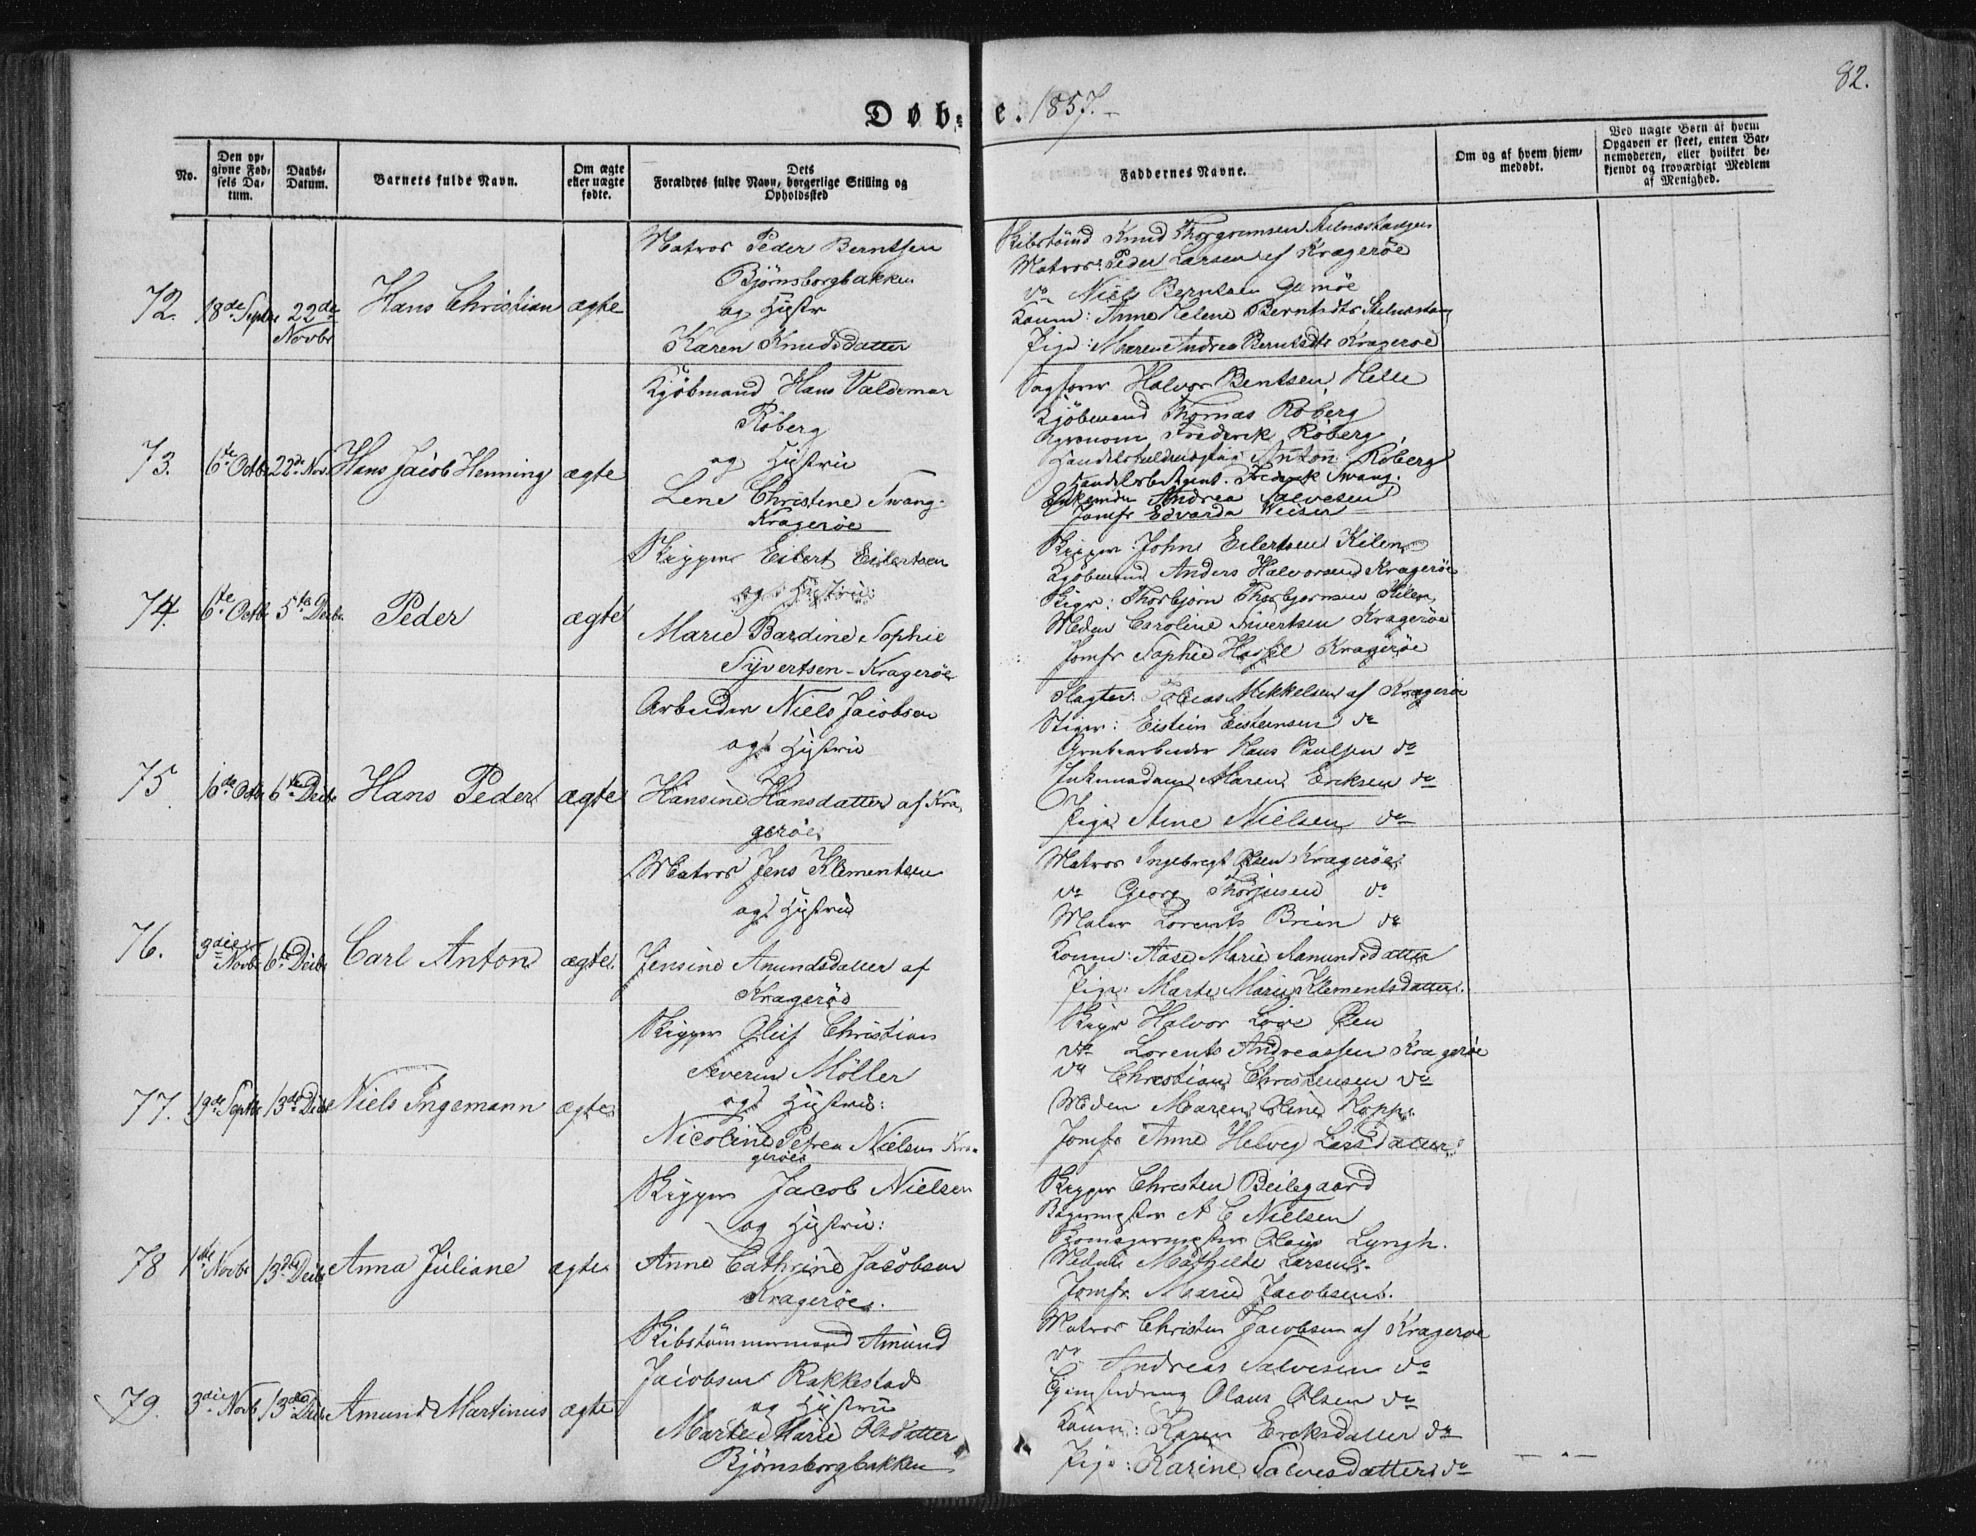 82.
Døbte. 1857.
No.
Den opgivne Fødsels Datum.
Daabs-Datum.
Barnets fulde Navn.
Om ægte eller uægte fødte.
Dets Forældres fulde Navn, borgerlige Stilling og Opholdssted
Faddernes Navne.
Om og af hvem hjemmedøbt.
Ved uægte Børn af hvem Opgaven er skeet, enten Barnemoderen, eller hvilket bekjendt og troværdigt Medlem af Menighed.
72. 18de Septbr 22de Novbr Hans Christian ægte
Matros Peder Berntsen
Bjørnsborgbakken
og Hustr
Karen Knudsdatter
Knud Thorgrimsen
Matros Peder Larsen af Kragerøe
do Niels Berntsen
Koum: Anne Helene Berntsdtr
Pige: Maren Andrea Berntsdtr Kragerøe
73. 6te Octbr 22de Nov. Hans Jacob Henning ægte
Kjøbmand Hans Valdemar
Röberg
og Hustru
Lene Christene Swang
Kragerøe
Sagfører Halvor Bentsen Helle
Kjøbmand Thomas Röberg
Agronom Frederik Röberg
Anton Röberg
Frederik Swang
Andrea Salvesen
Jomfr Edvarda
74. 6te Octb. 5te Decbr. Peder ægte
Skipper Eilert Eilertsen
og Hustru
Marie Bardine Sophie
Syvertsen - Kragerøe
Skipper John Eilertsen Kilen
Kjøbmand Anders Halvorsen Kragerøe
Skipr: Thorbjørn Thorbjørnsen Kilen
Mdm Caroline Sivertsen Kragerøe
Jomfr Sophie Hassel Kragerøe
75 16de Octbr 6te Decbr Hans Peder ægte
Arbeider Niels Jacobsen
og Hustru
Hansine Hansdatter af Kra
gerøe
Slagter: Tobias Mikkelsen af Kragerøe
Stiger: Eistein Eisteinsen do
Grubearbeider Hans Paulsen do
Enkemadam Maren Eriksen do
Pige Anne Nielsen do
76. 3die Novbr 6te Decbr Carl Anton ægte.
Matros Jens Klementsen
og Hustru
Jensine Amundsdatter af
Kragerøe
Matros Ingebregt Olsen Kragerøe
do Georg Thorjusen do
Maler Lorents Bruun do
Koum: Aase Marie Aamundsdatter
Pige: Marte Marie Klementsdatter.
77. 19de Septbr 13de Decbr Niels Ingemann ægte
Skipper Oluf Christian
Severin Möller
og Hustru:
Nicoline Petrea Nielsen Kra
gerøe
Skipr Halvor Oen
do Lorents Andreassen Kragerøe
do Christian Christensen do
Mdm Maren Oline Hopp
Jomfr Anne Helvig Larsdatter
78 1ste Novbr 13de Decbr Anna Juliane ægte
Skipper Jacob Nielsen
og Hustru:
Anne Cathrine Jacobsen
Kragerøe.
Skipper Christen Beilegaard
A C Nielsen
Olaus Lyngh.
Mathilde Larsen
Jomfr Marie Jacobsen.
79. 3die Novb 13de Decbr Amund Martinus ægte
Skibstømmermand Amund
Jacobsen Rakkestad
og Hustru
Marte Marie Olsdatter
Bjørnsborgbakken
Matros Christen Jacobsen af Kragerøe
do Andreas Salvesen do
Olaus Olsen do
Koum: Karen Ericksdatter do
Pige: Karine Salvesdatter do